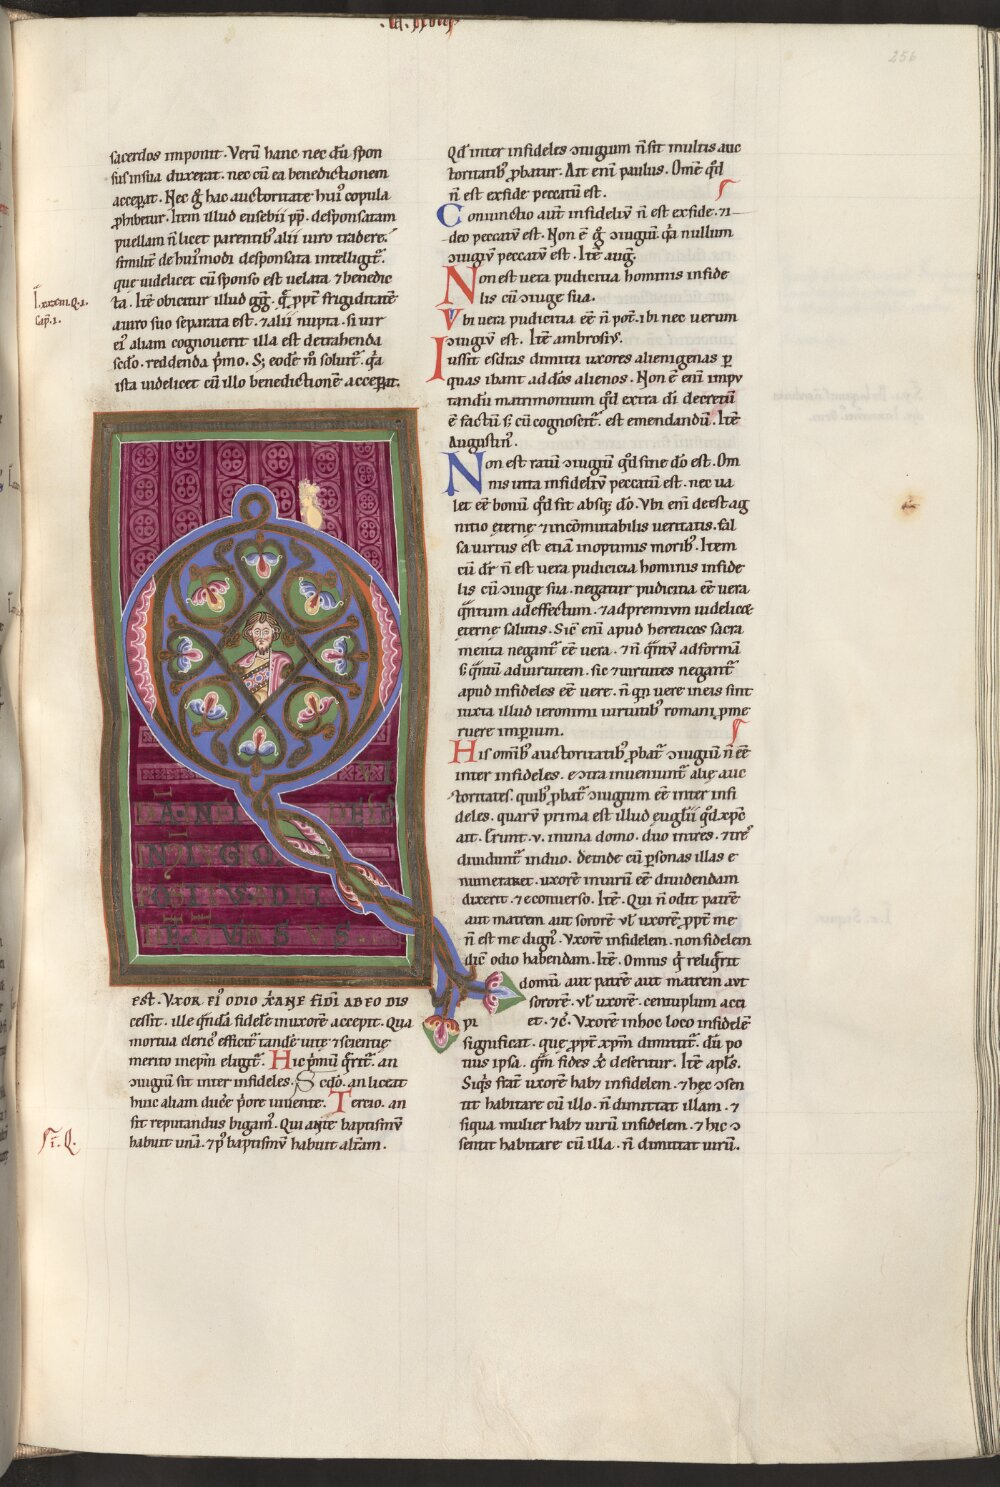 256
sacerdos imponit. Verū hanc nec dū spon
sus insua duxerat. nec cū ea benedictionem
acceꝑat. Nec gͦ hac auctoritate huiꝰ copula
ꝓhibetur. Item illud eusebii pp̄. desponsatam
puellam n̄ licet parentibꝰ alii uiro tradere.
similit̄ de huiꝰmodi desponsata intelligit᷑.
que uidelicet cū sponso est uelata ⁊ benedic
ta. Itē obicitur illud gḡ. q̄ ꝓpt̄ frigiditatē
auiro suo separata est. ⁊ alii nupta. si uir
eiꝰ aliam cognouerit illa est detrahenda
sc̄do. reddenda pͥmo. Sꝫ eodē m̄ soluit᷑. qͥa
ista uidelicet cū illo benedictionē acceꝑat.
Q
est. Vxor eiꝰ odio xp̄ane fidei ab eo dis
cessit. ille qͣndā fidelē inuxorē accepit. Qua
mortua clericꝰ efficit᷑ tandē uitę ⁊ scientię
merito inep̄m eligit᷑. Hic pͥmū q̄rit᷑. an
ↄiugiū sit inter infideles. Sc̄do. an liceat
huic aliam ducͤe pͥore uiuente. Tercio. an
sit reputandus bigamꝰ. Qui ante baptismū
habuit unā. ⁊ pꝰ baptismū habuit alt̄am.
Qd̄ inter infideles ↄiugium n̄ sit multis auc
toritatibꝰ ꝓbatur. Ait eni paulus. Om̄e qͦd
n̄ est ex fide peccatū est.
Coniunctio aut̄ infideliū n̄ est ex fide. ⁊ i
deo peccatū est. Non ē gͦ ↄiugiū. qͥa nullum
ↄiugiū peccatū est. Itē aug̅.
Non est uera pudicitia hominis infide
lis cū ↄiuge sua.
Vbi uera pudicitia eē n̄ pot̄. ibi nec uerum
ↄiugiū est. Itē ambrosiꝰ.
Iussit esdras dimitti uxores alienigenas ꝑ
quas ibant ad dōs alienos. Non ē eni impu
tandū matrimonium qͦd extra dī decretū
ē factū sꝫ cū cognoscit᷑. est emendandū. Itē
Augustinꝰ.
Non est ratū ↄiugiū qͦd sine dō est. Om
nis uita infideliū peccatū est. nec ua
let eē bonū qͦd fit absqꝫ dō. Vbi eni deest ag
nitio ęternę ⁊ incōmutabilis ueritatis. fal
sa uirtus est etiā in optimis moribꝰ. Item
cū dr̄ n̄ est uera pudicicia hominis infide
lis cū ↄiuge sua. negatur pudicitia eē uera
qͣntum ad effectum. ⁊ ad premium uidelicet
ęternę salutis. Sic̄ eni apud hereticos sacra
menta negant᷑ eē uera. ⁊ n̄ qͣntū ad formā
sꝫ qͣntū ad uirtutem. sic ⁊ uirtutes negant᷑
apud infideles eē uere. n̄ qͥn uere in eis sint
iuxta illud ieronimi uirtutibꝰ romani ꝓme
ruere imperium.
His om̄ibꝰ auctoritatibꝰ ꝓbat᷑ ↄiugiū n̄ eē
inter infideles. Ecͦtra inueniunt᷑ alię auc
toritates. quibꝰ ꝓbat᷑ ↄiugium eē inter infi
deles. quarū prima est illud euglīi qͦd xp̄c
ait. Erunt .v. in una domo. duo in tres. ⁊ trē
diuidunt᷑ in duo. deinde cū ꝑsonas illas e
numeraret. uxorē in uirū eē diuidendam
dixerit. ⁊ econuerso. Itē. Qui n̄ odit patrē
aut matrem aut sororē uł uxorē ꝓpt̄ me
n̄ est me dignꝰ. Vxorē infidelem. non fidelem
dicͥ odio habendam. Itē. Omnis qͥ reliqͥrit
domū aut patrē aut matrem aut
sororē. uł uxorē. centuplum acci
pi et. ⁊c̄. Vxorē in hoc loco infidelē
significat. que ꝓpt̄ xp̄m dimittit᷑. dū po
tius ipsa. qͣm fides x̄ deseritur. Itē apl̄s.
Siqͥs frat᷑ uxorē habꝫ infidelem. ⁊ hec ↄsen
tit habitare cū illo. n̄ dimittat illam. ⁊
siqua mulier habꝫ uirū infidelem. ⁊ hic ↄ
sentit habitare cū illa. n̄ dimittat uirū.